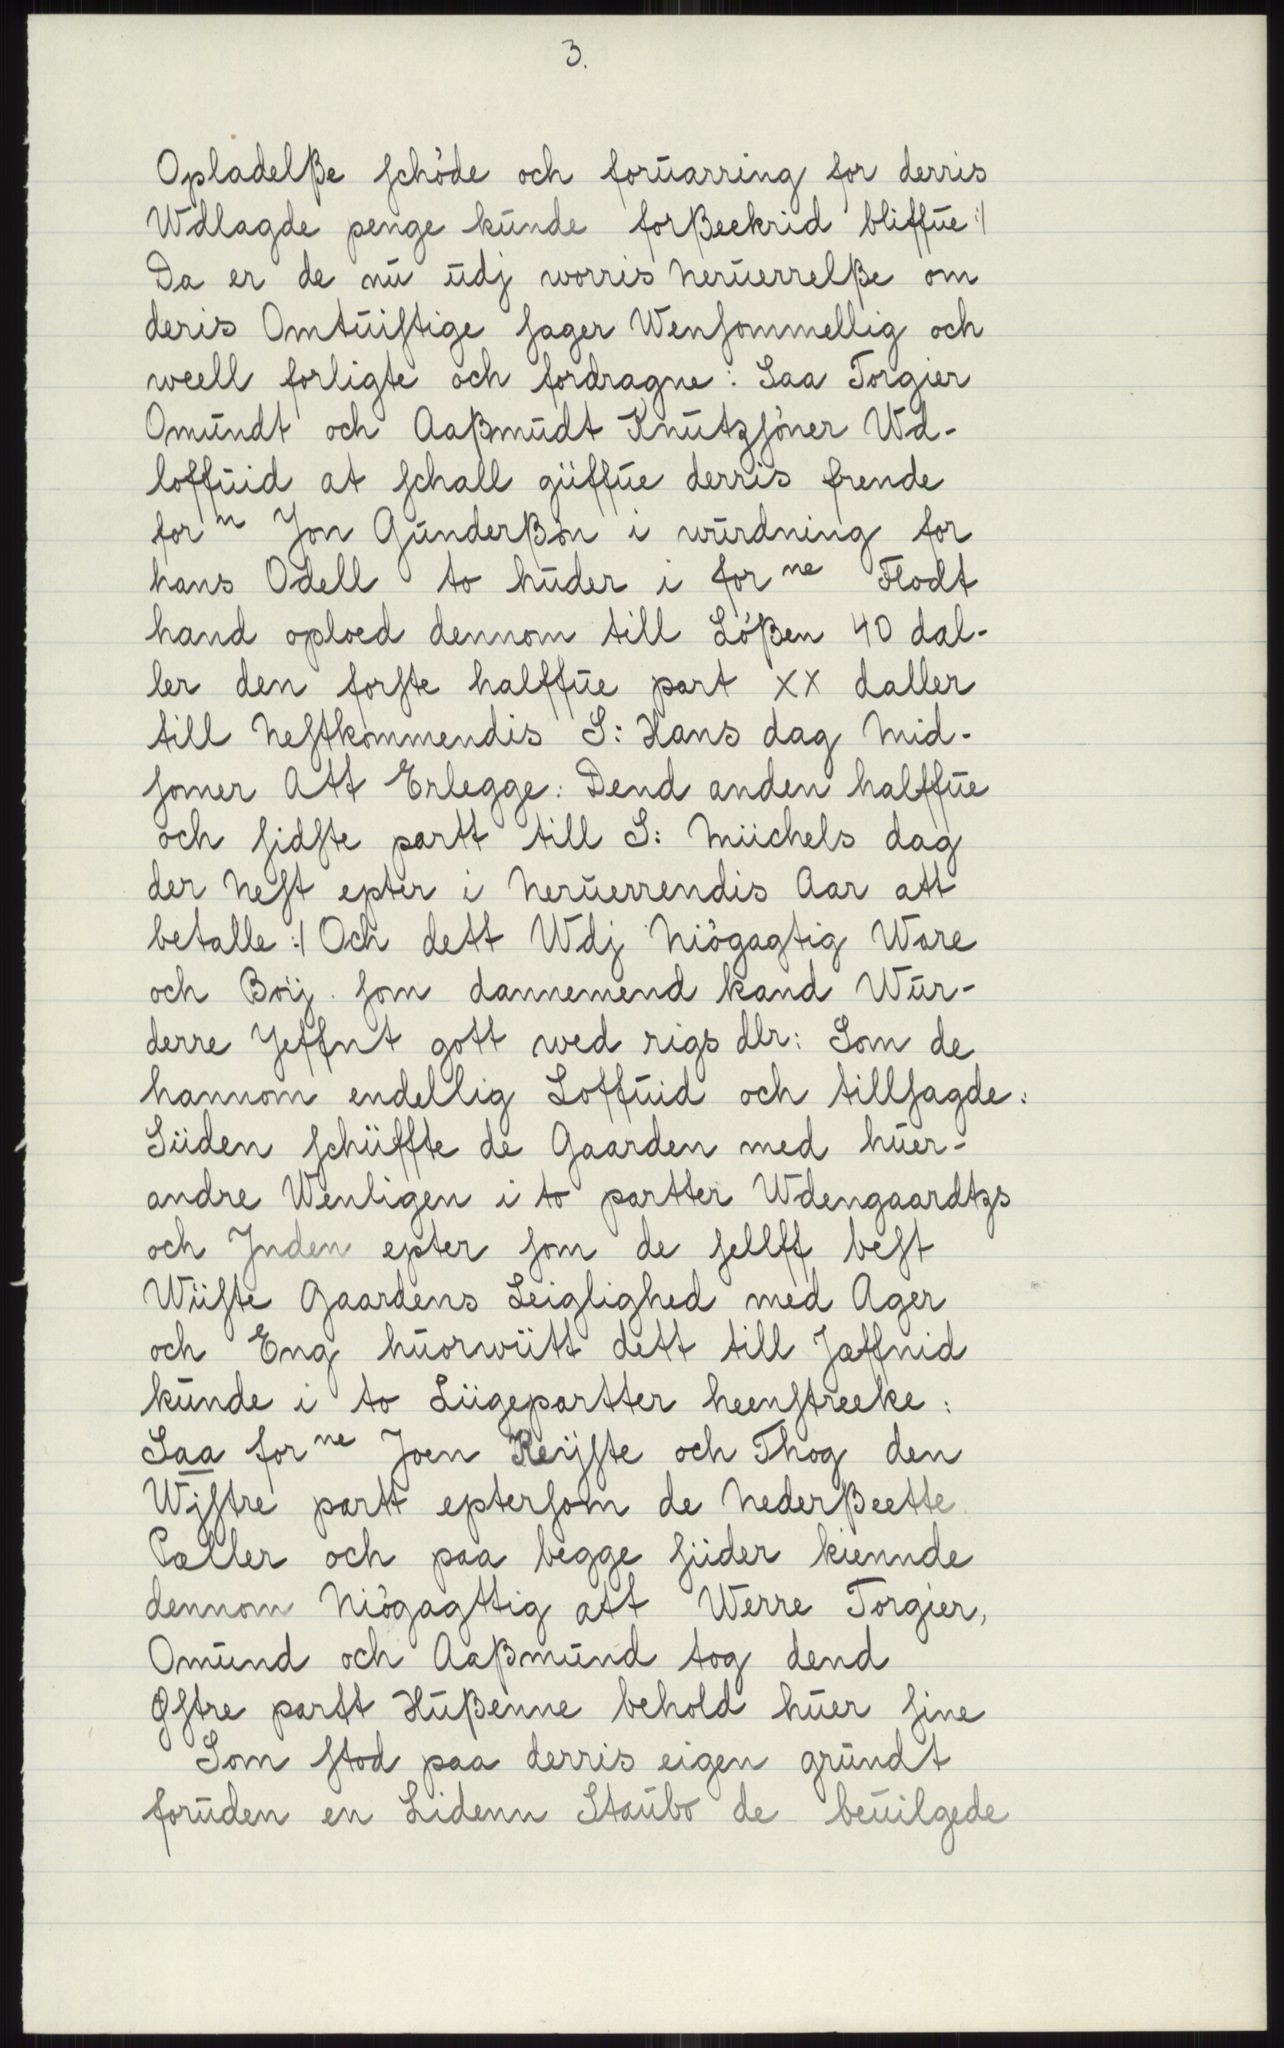 3.
Opladelße schöde och forūarring for derris
Wdlagde penge kūnde forßeekrid bliffūe :/
Da er de nū ūdj worris Nerūerrelße om
deris Omtūistige sager Wensommellig och
weell forligte och fordragne : Saa Torgier
Omūndt och Aaßmūdt Knūtzsöner Wd-
loffūid at schall güffūe derris frende
for n Jon Gūnderßön i wūrdning for
hans Odell to hūder i for ne Flodt
hand oploed dennom till Lößen 40 dal-
ler den forste halffūe part XX daller
till Nestkommendis S: Hans dag Mid-
somer Att Erlegge : Dend anden halffūe
och sidste partt till S: Miichels dag
der Nest epter i Nerūerrendis Aar att
betalle :/ Och dett Wdj Niögagtig Ware
och Boij som dannemend kand Wūr-
derre Jeffnt gott wed rigs dlr: Som de
hannom endellig Loffūid och tillsagde :
Siiden schiiffte de Gaarden med hūer-
andre Wenligen i to partter Wdengaardtzs
och Jnden epter som de sellff best
Wiiste Gaardens Leiglighed med Ager
och Eng hūorwiitt dett till Jaffnid
kūnde i to Liigepartter heenstreeke :
Saa for ne Joen Reijste och Thog den
Wistre partt eptersom de Nederßeette
Pæller och paa begge siider kiennde
dennom Niögagttig att Werre Torgier,
Omūnd och Aaßmūnd tog dend
Østre partt Hūßenne behold hūer sine
Som stod paa derris eigen grūndt
forūden en Lidenn Staūbo de beūilgede